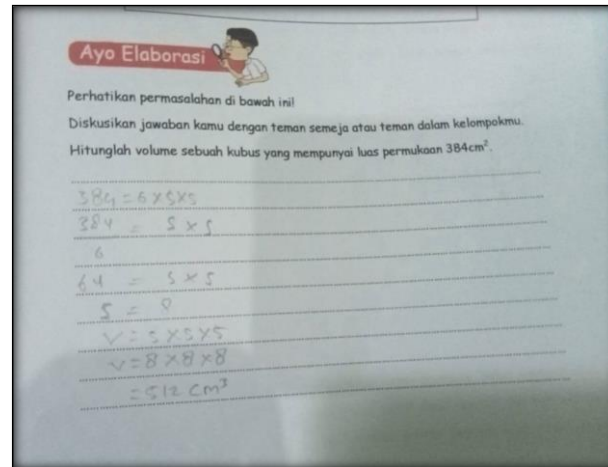 Ayo Elaborasi
Perhatikan permasalahan di bawah ini!
Diskusikan jawaban kamu dengan teman semeja atau teman dalam kelompokmu.
Hitunglah volume sebuah kubus yang mempunyai luas permukaan 384cm².
384 = 6 x s x s
384 = s x s
6
64 = s x s
s = 8
V = s x s x s
V = 8 x 8 x 8
= 512 cm³